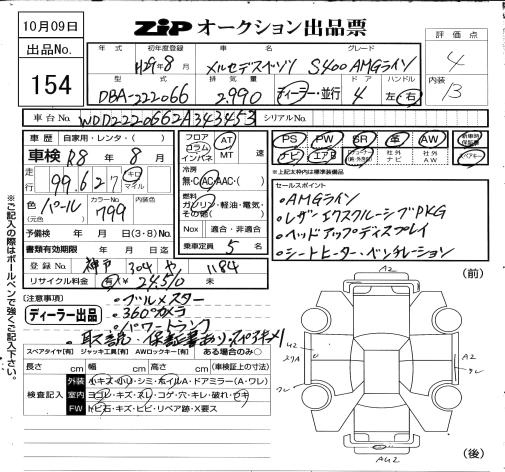 10月09日
ZIP オークション出品票
出品No.
154
評価点
4
内装
B
年式 初年度登録 車名 グレード
H29年8月 メルセデスベンツ S400 AMGライン
型式 排気量 ドア ハンドル
DBA-222066 2.990 ディーラー・並行 4 左・右
車台No. WDD2220662A343453 シリアルNo.
車歴 自家用・レンタ・( )
車検 R8年 8月
走行 99,627 キロ マイル
色(元色) パール カラーNo. 799 内装色
予備検 年 月 日(3・8)No.
書類有効期限 年 月 日迄
登録No. 神戸 304 ヤ 1184
リサイクル料金 有 24,510 未
フロア コラム インパネ AT MT 速
冷房 無・C・AC・AAC・( )
燃料 ガソリン・軽油・電気・その他( )
Nox 適合・非適合
乗車定員 5名
PS PW SR 革 AW 新車時保証書
ナビ エアB 社外ナビ 社外AW
※上記太枠内は標準装備品
セールスポイント
・AMGライン
・レザーエクスクルーシブPKG
・ヘッドアップディスプレイ
・シートヒーター・ベンチレーション
(注意事項)
ディーラー出品
・ブルメスター
・360°カメラ
・パワートランク
・取説・保証書あり・スペアキー×1
スペアタイヤ[有] ジャッキ工具[有] AWロックキー[有] ある場合のみ○
長さ cm 幅 cm 高さ cm (車検証上の寸法)
検査記入
外装 小キズ・小リ・シミ・ホイルA・ドアミラー(A・ワレ)
室内 ヨゴレ・キズ・スレ・コゲ・穴・キレ・破れ・ウキ
FW トビ石・キズ・ヒビ・リペア跡・X要ス
(前)
A2
A2
AU2
(後)
※ご記入の際はボールペンで強くご記入下さい。